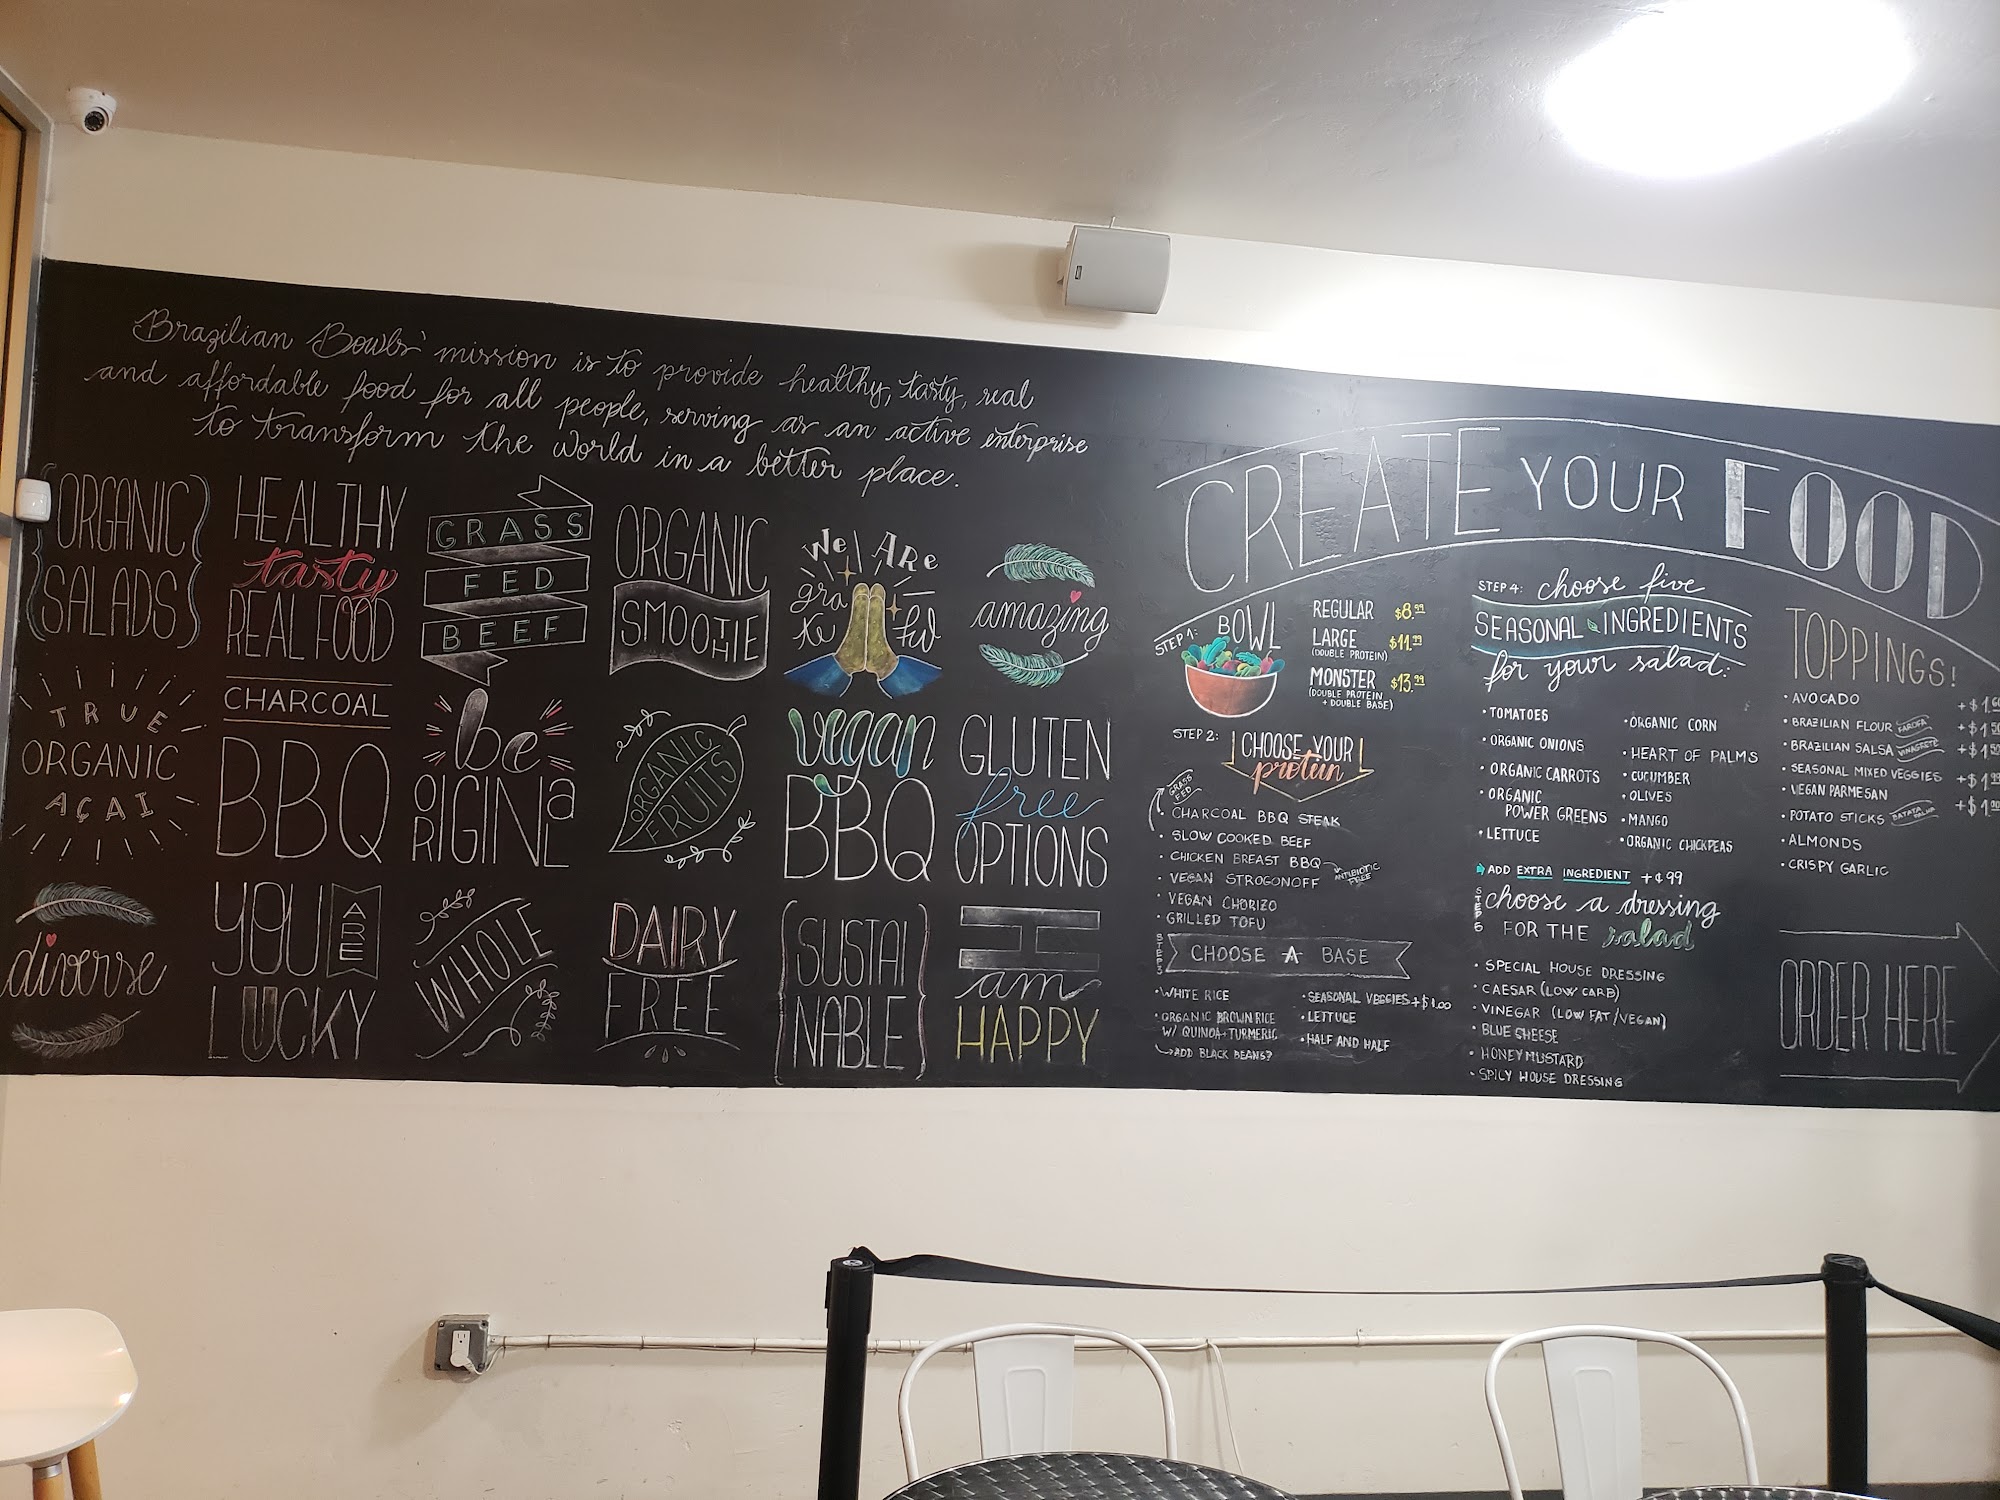 Brazilian Bowls' mission is to provide healthy, tasty, real
and affordable food for all people, serving as an active enterprise
to transform the world in a better place.
ORGANIC
SALADS
HEALTHY
tasty
REAL FOOD
GRASS
FED
BEEF
ORGANIC
SMOOTHIE
We ARe
grateful
amazing
TRUE
ORGANIC
AÇAI
CHARCOAL
BBQ
be
ORIGINAL
ORGANIC
FRUITS
vegan
BBQ
GLUTEN
free
OPTIONS
diverse
YOU ARE
LUCKY
WHOLE
DAIRY
FREE
SUSTAI
NABLE
I
am
HAPPY
CREATE YOUR FOOD
STEP 1: BOWL
REGULAR $8.99
LARGE $11.99
(DOUBLE PROTEIN)
MONSTER $13.99
(DOUBLE PROTEIN
+ DOUBLE BASE)
STEP 2: CHOOSE YOUR
protein
GRASS
FED
• CHARCOAL BBQ STEAK
• SLOW COOKED BEEF
• CHICKEN BREAST BBQ
ANTIBIOTIC
FREE
• VEGAN STROGONOFF
• VEGAN CHORIZO
• GRILLED TOFU
STEP 3 CHOOSE A BASE
• WHITE RICE
• ORGANIC BROWN RICE
W/ QUINOA + TURMERIC
ADD BLACK BEANS?
• SEASONAL VEGGIES +$1.00
• LETTUCE
• HALF AND HALF
STEP 4: choose five
SEASONAL INGREDIENTS
for your salad:
• TOMATOES
• ORGANIC ONIONS
• ORGANIC CARROTS
• ORGANIC
POWER GREENS
• LETTUCE
• ORGANIC CORN
• HEART OF PALMS
• CUCUMBER
• OLIVES
• MANGO
• ORGANIC CHICKPEAS
ADD EXTRA INGREDIENT +¢99
STEP 6 choose a dressing
FOR THE salad
• SPECIAL HOUSE DRESSING
• CAESAR (LOW CARB)
• VINEGAR (LOW FAT/VEGAN)
• BLUE CHEESE
• HONEY MUSTARD
• SPICY HOUSE DRESSING
TOPPINGS!
• AVOCADO
• BRAZILIAN FLOUR FAROFA
• BRAZILIAN SALSA VINAGRETE
• SEASONAL MIXED VEGGIES
• VEGAN PARMESAN
• POTATO STICKS BATATA PALHA
• ALMONDS
• CRISPY GARLIC
ORDER HERE